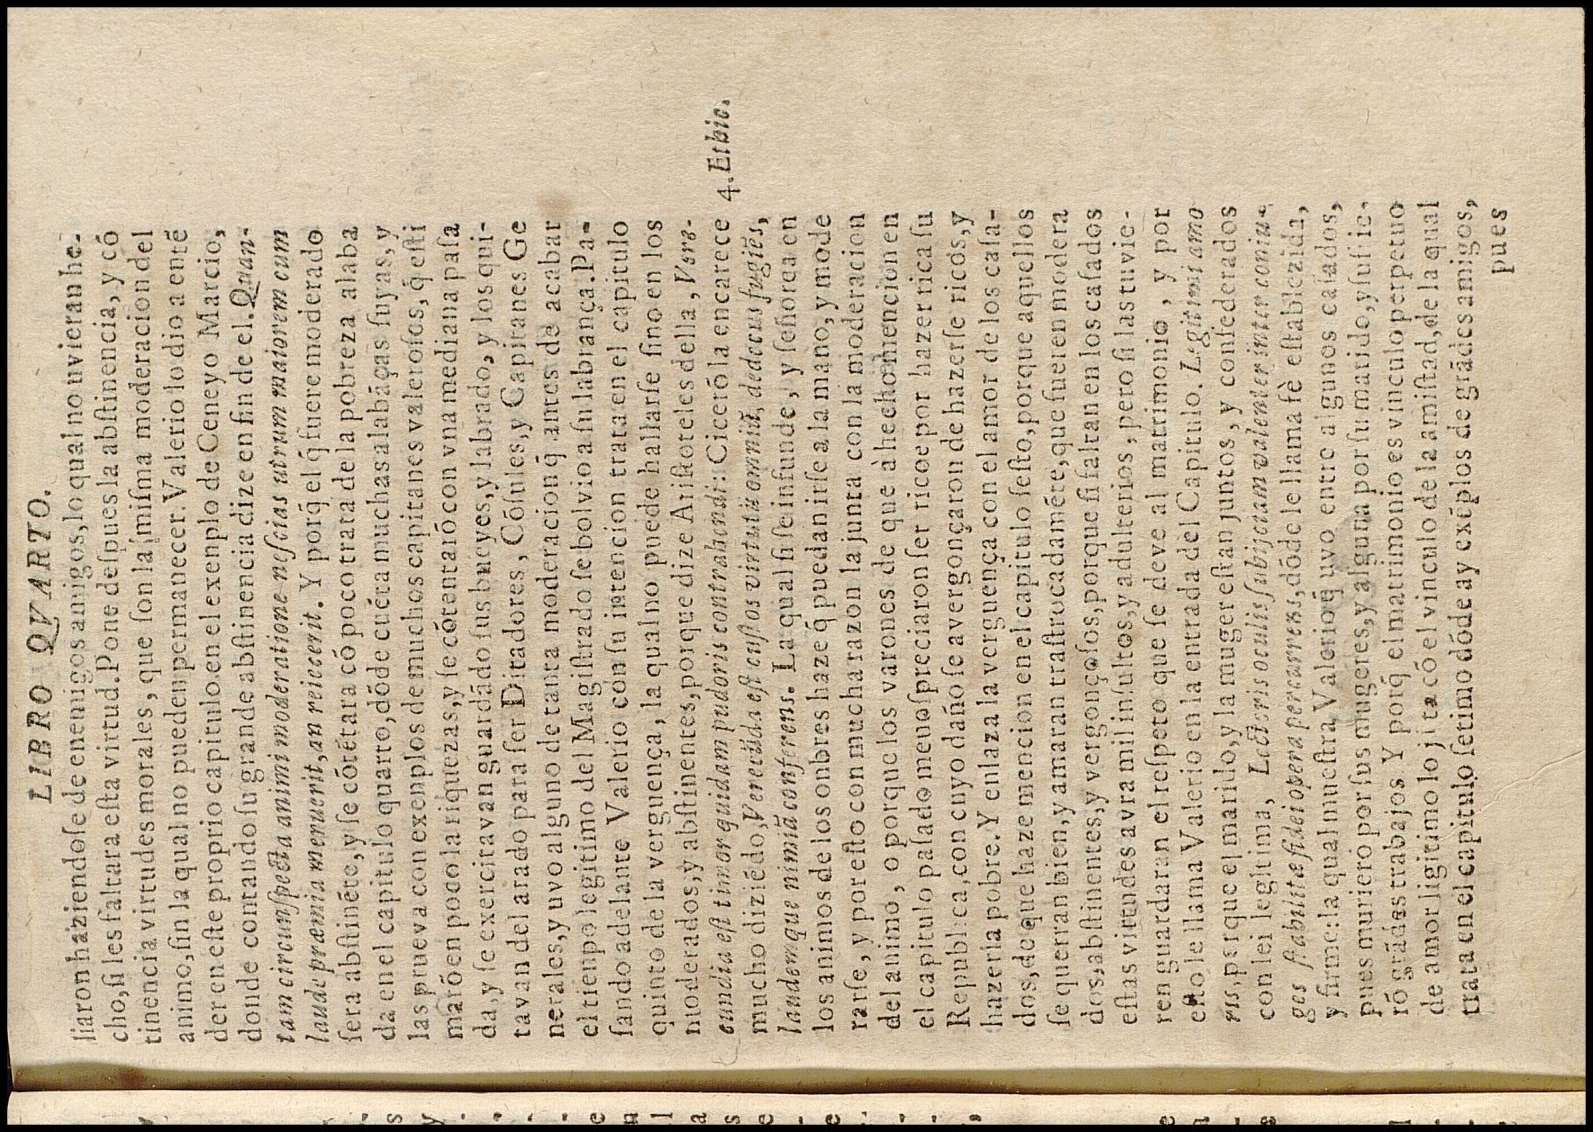 LIBRO QVARTO.
llaron haziendose de enemigos amigos, lo qual no uvieran he-
cho, si les faltara esta virtud. Pone despues la abstinencia, y cō
tinencia virtudes morales, que son la misma moderacion del
animo, sin la qual no pueden permanecer. Valerio lo dio a entē
der en este proprio capitulo, en el exenplo de Ceneyo Marcio,
donde contando su grande abstinencia dize en fin de el. Quan-
tam circunspecta animi moderatione nescias utrum maiorem cum
laude præmia meruerit, an reiecerit. Y porq̄ el q̄ fuere moderado
sera abstinēte, y se cōtētara cō poco trata de la pobreza alaba
da en el capitulo quarto, dōde cuēta muchas alabāças suyas, y
las prueva con exenplos de muchos capitanes valerosos, q̄ esti
marō en poco la riquezas, y se cōtentarō con vna mediana pasa
da, y se exercitavan guardādo sus bueyes, y labrado, y los qui-
tavan del arado para ser Ditadores, Cōsules, y Capitanes Ge
nerales, y uvo alguno de tanta moderacion q̄ antes de acabar
el tienpo legitimo del Magistrado se bolvio a su labrança. Pa-
sando adelante Valerio con su intencion trata en el capitulo
quinto de la verguença, la qual no puede hallarse sino en los
moderados, y abstinentes, porque dize Aristoteles della, Vere-
cundia est timor quidam pudoris contrahendi: Cicerō la encarece
4. Ethic.
mucho diziēdo, Verecūdia est custos virtutū omniū, dedecus fugiēs,
laudemque nimiā conferens. La qual si se infunde, y señorea en
los animos de los onbres haze q̄ puedan irse a la mano, y mode
rarse, y por esto con mucha razon la junta con la moderacion
del animo, o porque los varones de que à hecho mencion en
el capitulo pasado menospreciaron ser ricoe por hazer rica su
Republica, con cuyo daño se avergonçaron de hazerse ricos, y
hazerla pobre. Y enlaza la verguença con el amor de los casa-
dos, de que haze mencion en el capitulo sesto, porque aquellos
se querran bien, y amaran trastrocadamēte, que fueren modera
dos, abstinentes, y vergonçosos, porque si faltan en los casados
estas virtudes avra mil insultos, y adulterios, pero si las tuvie-
ren guardaran el respeto que se deve al matrimonio, y por
esto le llama Valerio en la entrada del Capitulo. Legitimi amo
ris, porque el marido, y la muger estan juntos, y confederados
con lei legitima, Lectoris oculis subijctam valenter inter coniu-
ges stabilitæ fidei opera percurrens, dōde le llama fè establezida,
y firme: la qual muestra Valerio q̄ uvo entre algunos casados,
pues muriero por sus mugeres, y alguna por su marido, y sufrie-
rō grādes trabajos Y porq̄ el matrimonio es vinculo perpetuo
de amor ligitimo lo jūta cō el vinculo de la amistad, de la qual
trata en el capitulo setimo dōde ay exēplos de grādes amigos,
pues